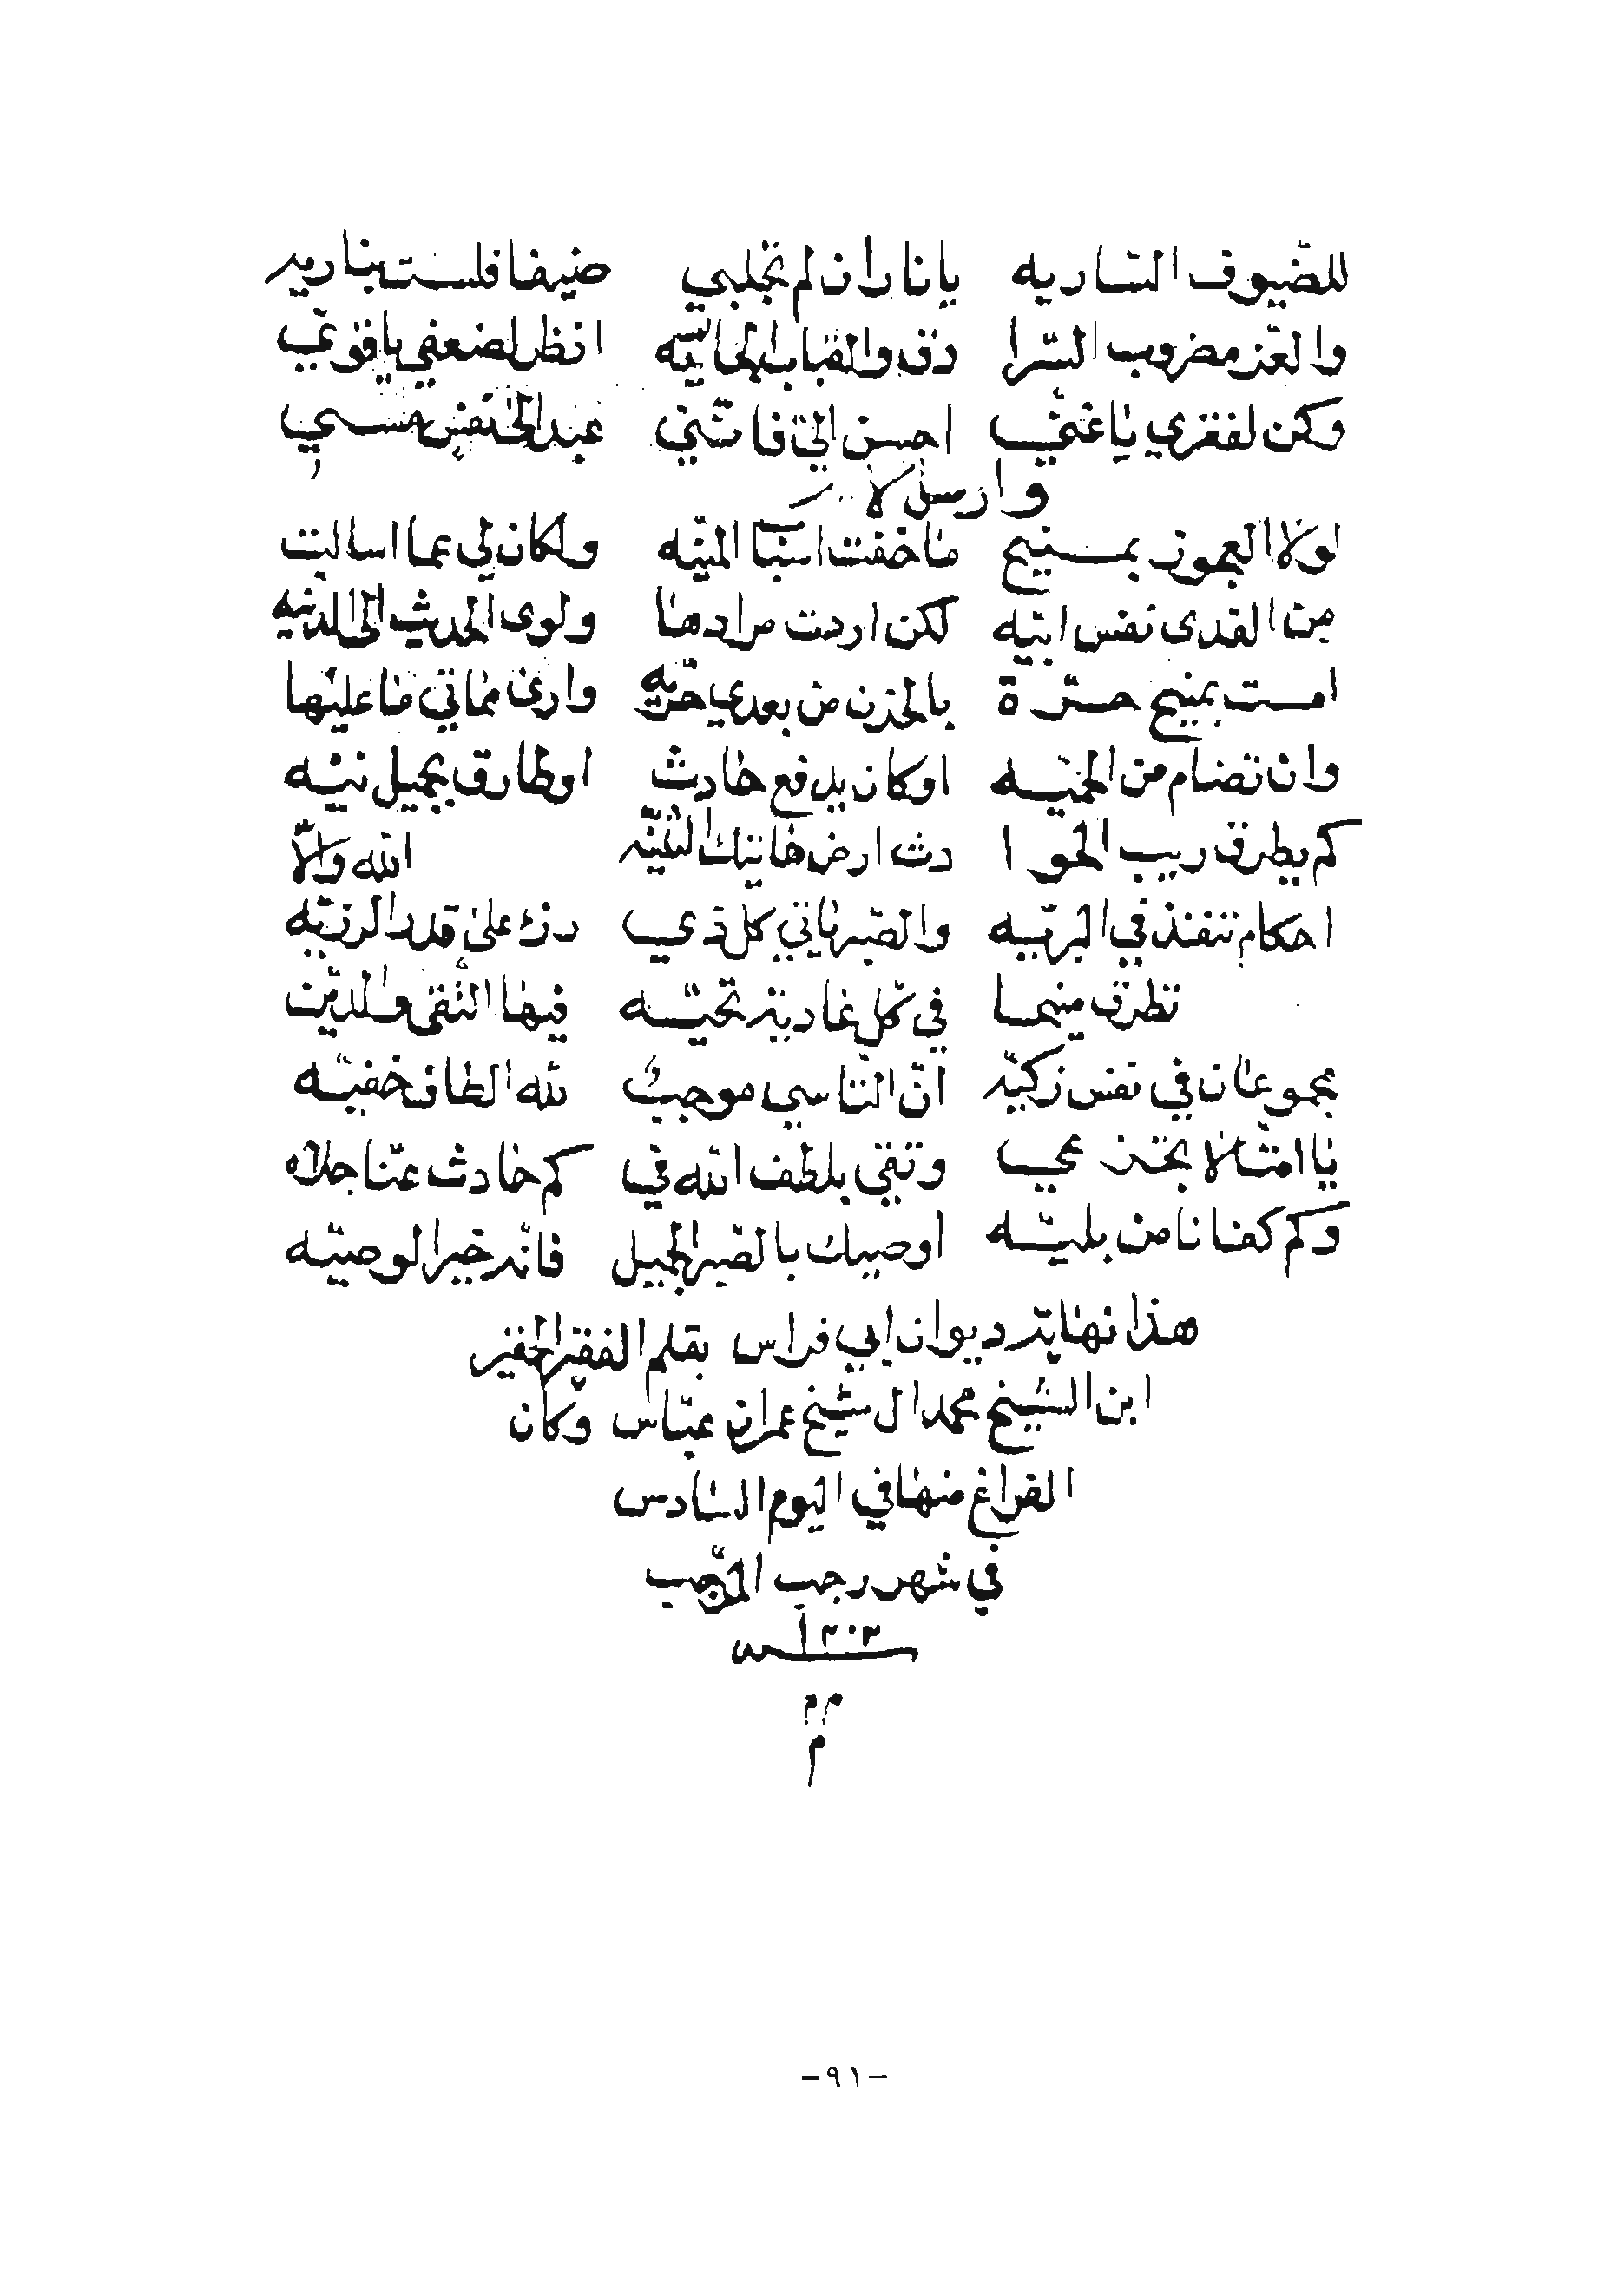 للضيوف الساريه يا نار ان لم تجلبي ضيفا فلست بناريه
والعز مضروب السرا دق والقباب الحانيه انظر لضعفي يا قوي
وكن لفقري يا غني احسن الي فانني عبد الى نفسي مسي
وارسل لا
لولا العجوز بمنبج ما خفت اسباب المنيه ولكان لي عما سالت
من الفدى نفس ابيه لكن اردت مرادها ولو انجذبت الى الدنيه
امست بمنبج حرة بالحزن من بعدي حريه وارى مماتي ما عليها
وان تضام من الحميه او كان يدفع حادث او طارق بجميل نيه
كم يطرق ريب الحوا دث ارض هاتيك الله ولا
احكام تنفذ في البريه والصبر ياتي كل ذي رزء على قدر الرزيه
تطرق منبجا في كل غادية تحيه فيها التقى والدين
مجموعان في نفس زكية ان التاسي موجب لله الطاف خفيه
يا امتا لا تحزني وثقي بلطف الله في كم حادث عنا جلاه
وكم كفانا من بليه اوصيك بالصبر الجميل فانه خير الوصيه
هذا نهاية ديوان ابي فراس بقلم الفقير الحقير
ابن الشيخ محمد ال شيخ عمران عباس وكان
الفراغ منها في اليوم السادس
في شهر رجب المرجب
سنة ١٣٠٣
م م
م
-٩١-